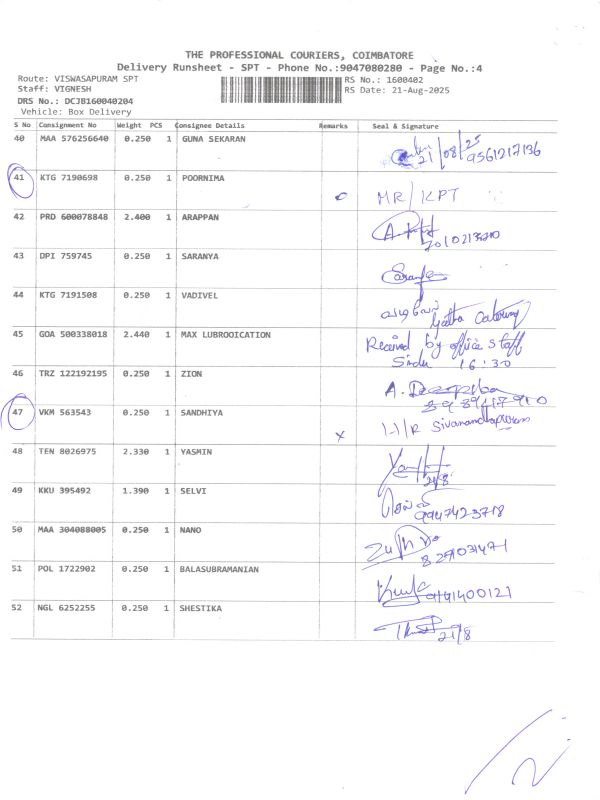 THE PROFESSIONAL COURIERS, COIMBATORE
Delivery Runsheet - SPT - Phone No.:9047080280 - Page No.:4
Route: VISWASAPURAM SPT RS No.: 1600402
Staff: VIGNESH RS Date: 21-Aug-2025
DRS No.: DCJB160040204
Vehicle: Box Delivery
S No Consignment No Weight PCS Consignee Details Remarks Seal & Signature
40 MAA 576256640 0.250 1 GUNA SEKARAN 21/08/25
9561217136
41 KTG 7190698 0.250 1 POORNIMA MR/KPT
42 PRD 600078848 2.400 1 ARAPPAN
43 DPI 759745 0.250 1 SARANYA Saranya
44 KTG 7191508 0.250 1 VADIVEL வடிவேல் Catering
45 GOA 500338018 2.440 1 MAX LUBROOICATION Received by office staff
Sindu 16:30
46 TRZ 122192195 0.250 1 ZION A. Deepiba
47 VKM 563543 0.250 1 SANDHIYA x Sivanandhapuram
48 TEN 8026975 2.330 1 YASMIN
21/8
49 KKU 395492 1.390 1 SELVI செல்வி
9947423718
50 MAA 304088005 0.250 1 NANO
51 POL 1722902 0.250 1 BALASUBRAMANIAN
9191400121
52 NGL 6252255 0.250 1 SHESTIKA
21/8